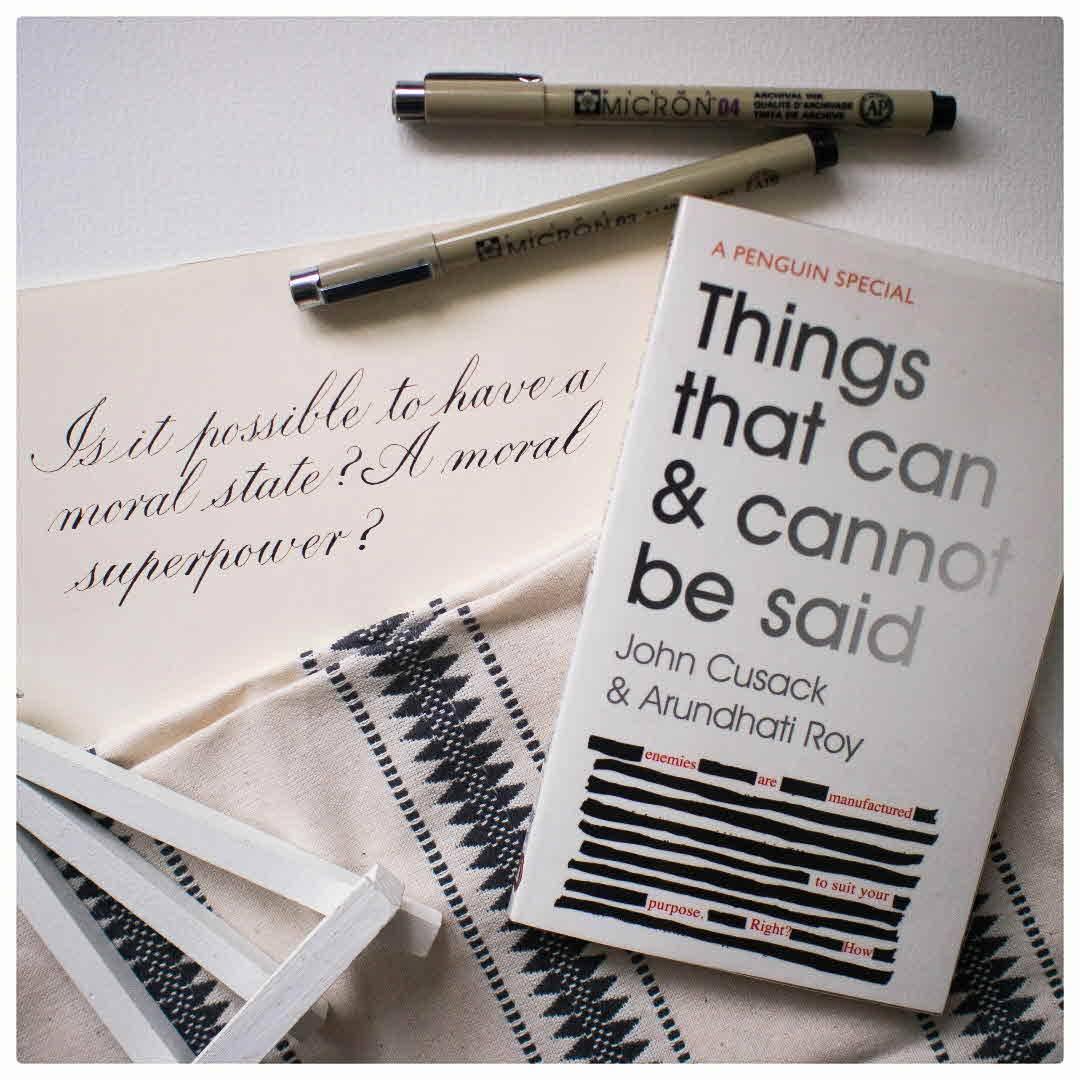 PIGMA
MICRON 04
ARCHIVAL INK
QUALITÉ D'ARCHIVAGE
TINTA DE ARCHIVO
AP
MICRON
A PENGUIN SPECIAL
Things
that can
& cannot
be said
John Cusack
& Arundhati Roy
enemies are manufactured
to suit your
purpose. Right? How
Is it possible to have a
moral state? A moral
superpower?